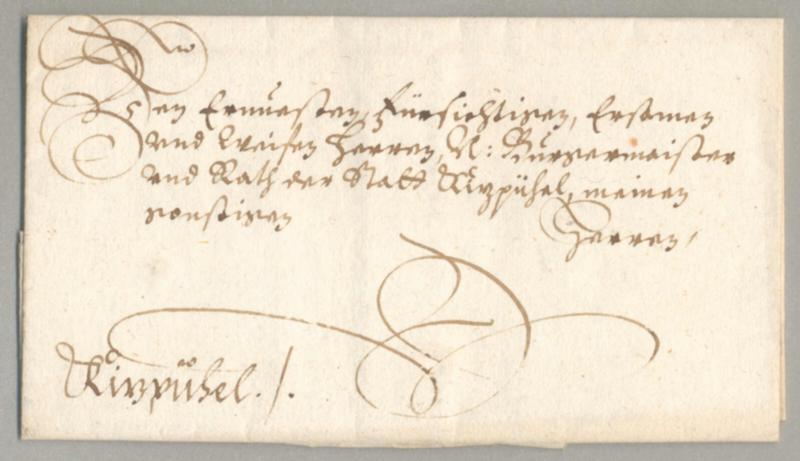 Den Ernuesten, Fürsichtigen, Ersamen
vnd Weisen Herren, N: Burgermaister
vnd Rath der Statt Kizpühel, meinen
gonstigen
Herren /
Kizpühel ./.